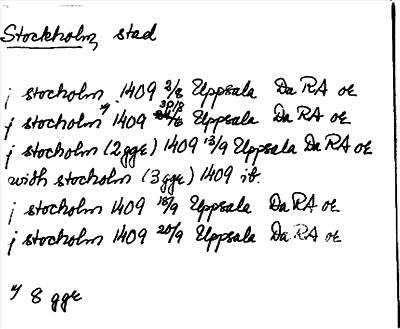 Stockholm, stad
j stocholm 1409 3/8 Uppsala Da RA oe
j stocholm x/ 1409 30/8 Uppsala Da RA oe
j stocholm (2 gge) 1409 13/9 Uppsala Da RA oe
widh stocholm (3 gge) 1409 ib.
j stocholm 1409 18/9 Uppsala Da RA oe
j stocholm 1409 20/9 Uppsala Da RA oe
x/ 8 gge